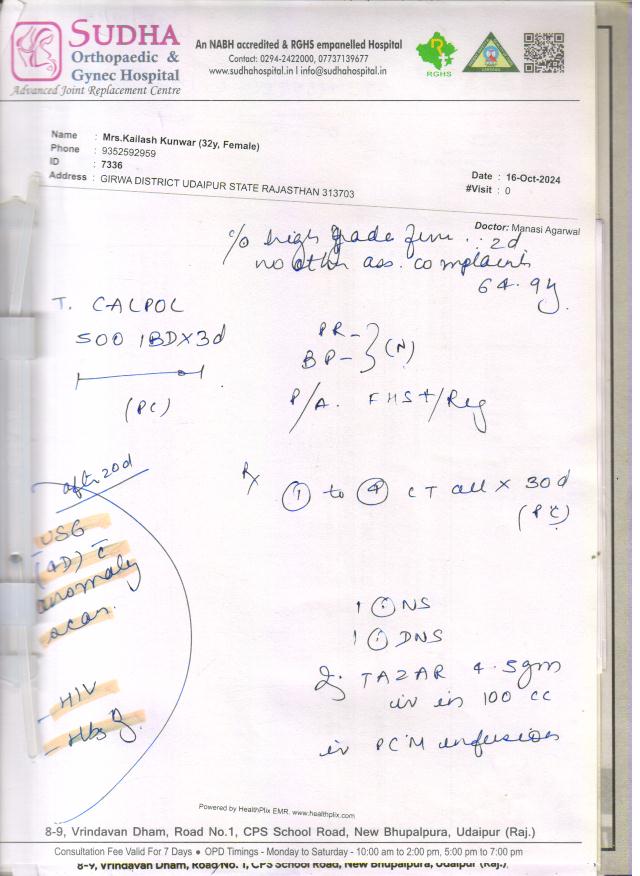 SUDHA
Orthopaedic &
Gynec Hospital
Advanced Joint Replacement Centre
An NABH accredited & RGHS empanelled Hospital
Contact: 0294-2422000, 07737139677
www.sudhahospital.in | info@sudhahospital.in
RGHS
Name : Mrs.Kailash Kunwar (32y, Female)
Phone : 9352592959
ID : 7336
Address : GIRWA DISTRICT UDAIPUR STATE RAJASTHAN 313703
Date : 16-Oct-2024
#Visit : 0
Doctor: Manasi Agarwal
c/o high grade fever .. 2d
no other ass. complaints
64.9
T. CALPOL
500 1BDX3d
(PC)
PR-
BP- } (N)
P/A. FHS+/Reg
after 20d
USG
(4D) c̄
anomaly
scan.
- HIV
- HBsg.
Rx
① to ④ CT all x 30d
(PC)
1 NS
1 DNS
TAZAR 4.5gm
iv in 100 cc
iv PCM infusion
Powered by HealthPlix EMR. www.healthplix.com
8-9, Vrindavan Dham, Road No.1, CPS School Road, New Bhupalpura, Udaipur (Raj.)
Consultation Fee Valid For 7 Days ● OPD Timings - Monday to Saturday - 10:00 am to 2:00 pm, 5:00 pm to 7:00 pm
8-9, Vrindavan Dham, Road No. 1, CPS School Road, New Bhupalpura, Udaipur (Raj.)